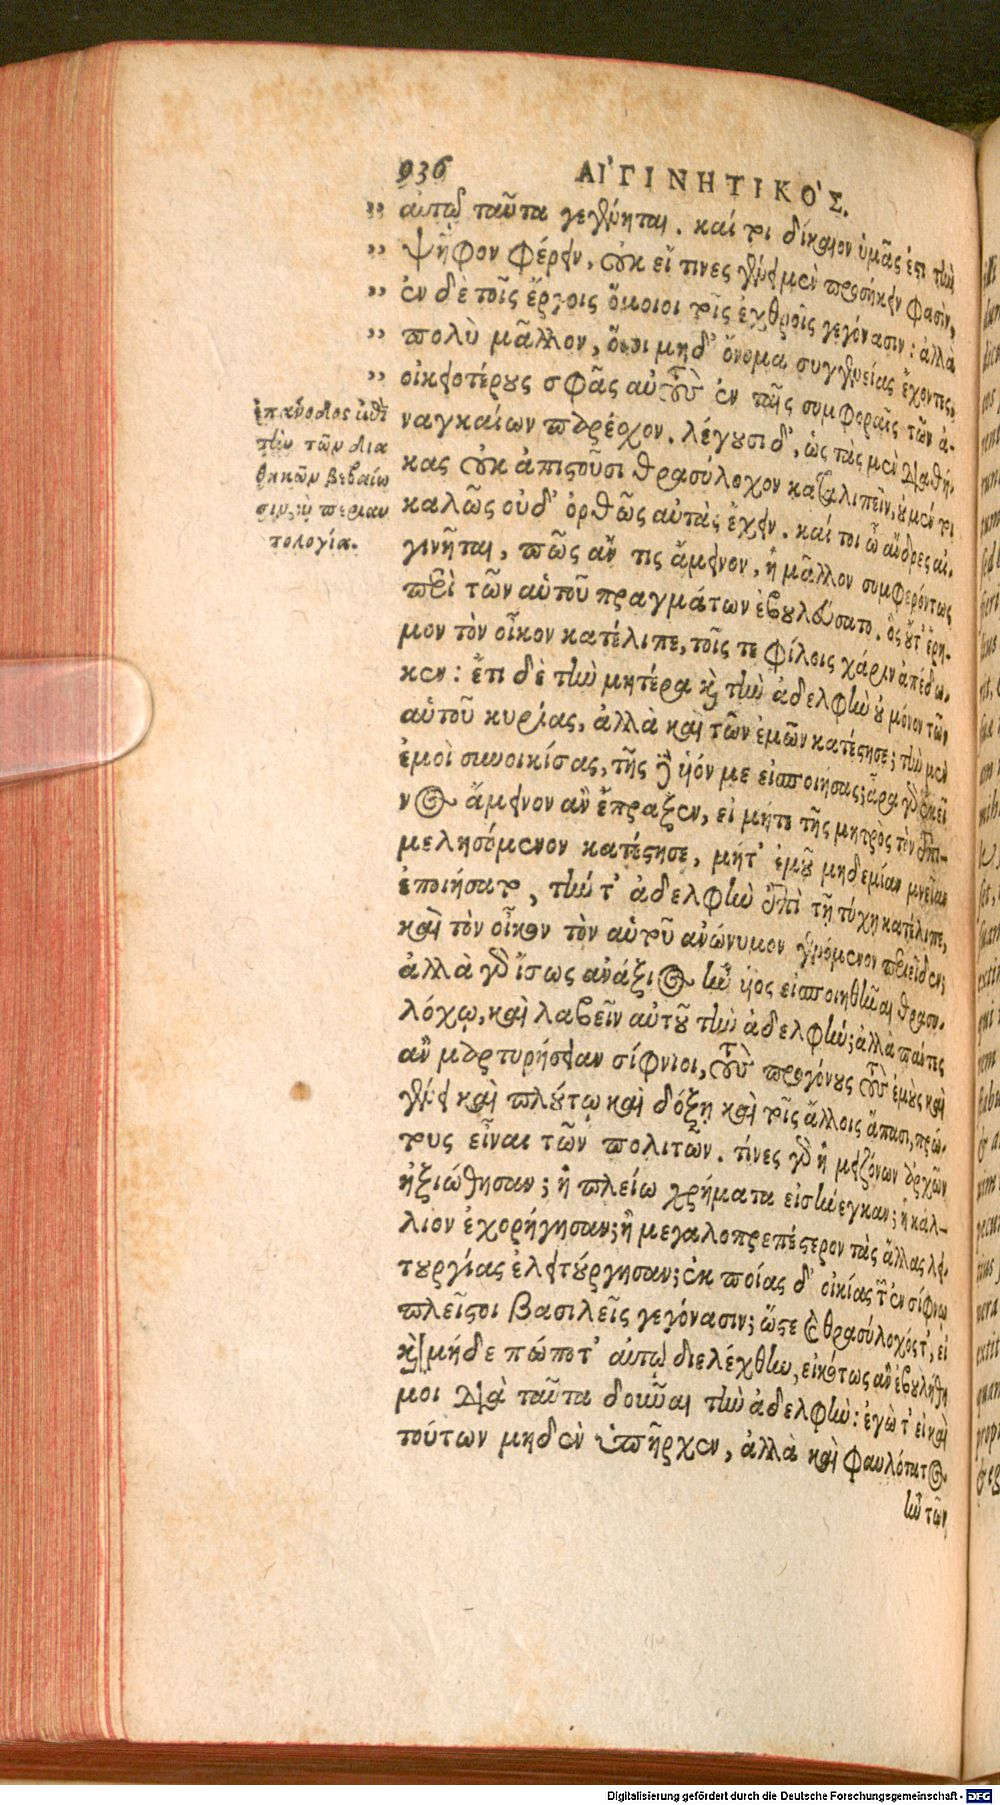 936 ΑἸΓΙΝΗΤΙΚΌΣ.
„ αὐτῷ ταῦτα γεγένηται. καί τοι δίκαιον ὑμᾶς ἐστι τὴν
„ ψῆφον φέρειν, οὐκ εἴ τινες γένει μὲν προσήκειν φασὶν,
„ ἐν δὲ τοῖς ἔργοις ὅμοιοι τοῖς ἐχθροῖς γεγόνασιν: ἀλλὰ
„ πολὺ μᾶλλον, ὅσοι μηδ' ὄνομα συγγενείας ἔχοντες,
„ οἰκειοτέρους σφᾶς αὐτοὺς ἐν ταῖς συμφοραῖς τῶν ἀ-
ναγκαίων παρέσχον. λέγουσι δ', ὡς τὰς μὲν διαθή-
κας οὐκ ἀπιστοῦσι θρασύλοχον καταλιπεῖν, οὐ μέν τοι
καλῶς οὐδ' ὀρθῶς αὐτὰς ἔχειν. καί τοι ὦ ἄνδρες αἰ-
γινῆται, πῶς ἄν τις ἄμεινον, ἢ μᾶλλον συμφερόντως
περὶ τῶν αὑτοῦ πραγμάτων ἐβουλεύσατο. ὃς οὔτ' ἔρη-
μον τὸν οἶκον κατέλιπε, τοῖς τε φίλοις χάριν ἀπέδω-
κεν: ἔτι δὲ τὴν μητέρα καὶ τὴν ἀδελφὴν οὐ μόνον τῶν
αὑτοῦ κυρίας, ἀλλὰ καὶ τῶν ἐμῶν κατέστησε; τὴν μὲν
ἐμοὶ συνοικίσας, τῆς δὲ υἱόν με εἰσποιήσας; ἆρα γὰρ ἐκεῖ
νος ἄμεινον ἂν ἔπραξεν, εἰ μήτε τῆς μητρὸς τὸν ἐπι-
μελησόμενον κατέστησε, μήτ' ἐμοῦ μηδεμίαν μνείαν
ἐποιήσατο, τήν τ' ἀδελφὴν ἐπὶ τῇ τύχῃ κατέλιπε,
καὶ τὸν οἶκον τὸν αὑτοῦ ἀνώνυμον γενόμενον περιεῖδεν;
ἀλλὰ γὰρ ἴσως ἀνάξιος ἦν υἱος εἰσποιηθῆναι θρασυ-
λόχῳ, καὶ λαβεῖν αὐτοῦ τὴν ἀδελφήν; ἀλλὰ πάντες
ἂν μαρτυρήσειαν σίφνιοι, τοὺς προγόνους τοὺς ἐμοὺς καὶ
γένει καὶ πλούτῳ καὶ δόξῃ καὶ τοῖς ἄλλοις ἅπασι, πρώ-
τους εἶναι τῶν πολιτῶν. τίνες γὰρ ἢ μειζόνων ἀρχῶν
ἠξιώθησαν; ἢ πλείω χρήματα εἰσήνεγκαν; ἢ κάλ-
λιον ἐχορήγησαν; ἢ μεγαλοπρεπέστερον τὰς ἄλλας λει-
τουργίας ἐλειτούργησαν; ἐκ ποίας δ' οἰκίας τῶν ἐν σίφνῳ
πλεῖστοι βασιλεῖς γεγόνασιν; ὥστε θρασύλοχός τ', εἰ
καὶ μήδε πώποτ' αὐτῷ διελέχθην, εἰκότως ἂν ἐβουλήθη
μοι διὰ ταῦτα δοῦναι τὴν ἀδελφὴν: ἐγώ τ' εἰ καὶ
τούτων μηδὲν ὑπῆρχεν, ἀλλὰ καὶ φαυλότατος
ἦν τῶν
ἐπάνοδος ἐπὶ
τὴν τῶν δια
θηκῶν βεβαίω
σιν, ἢ περιαυ
τολογία.